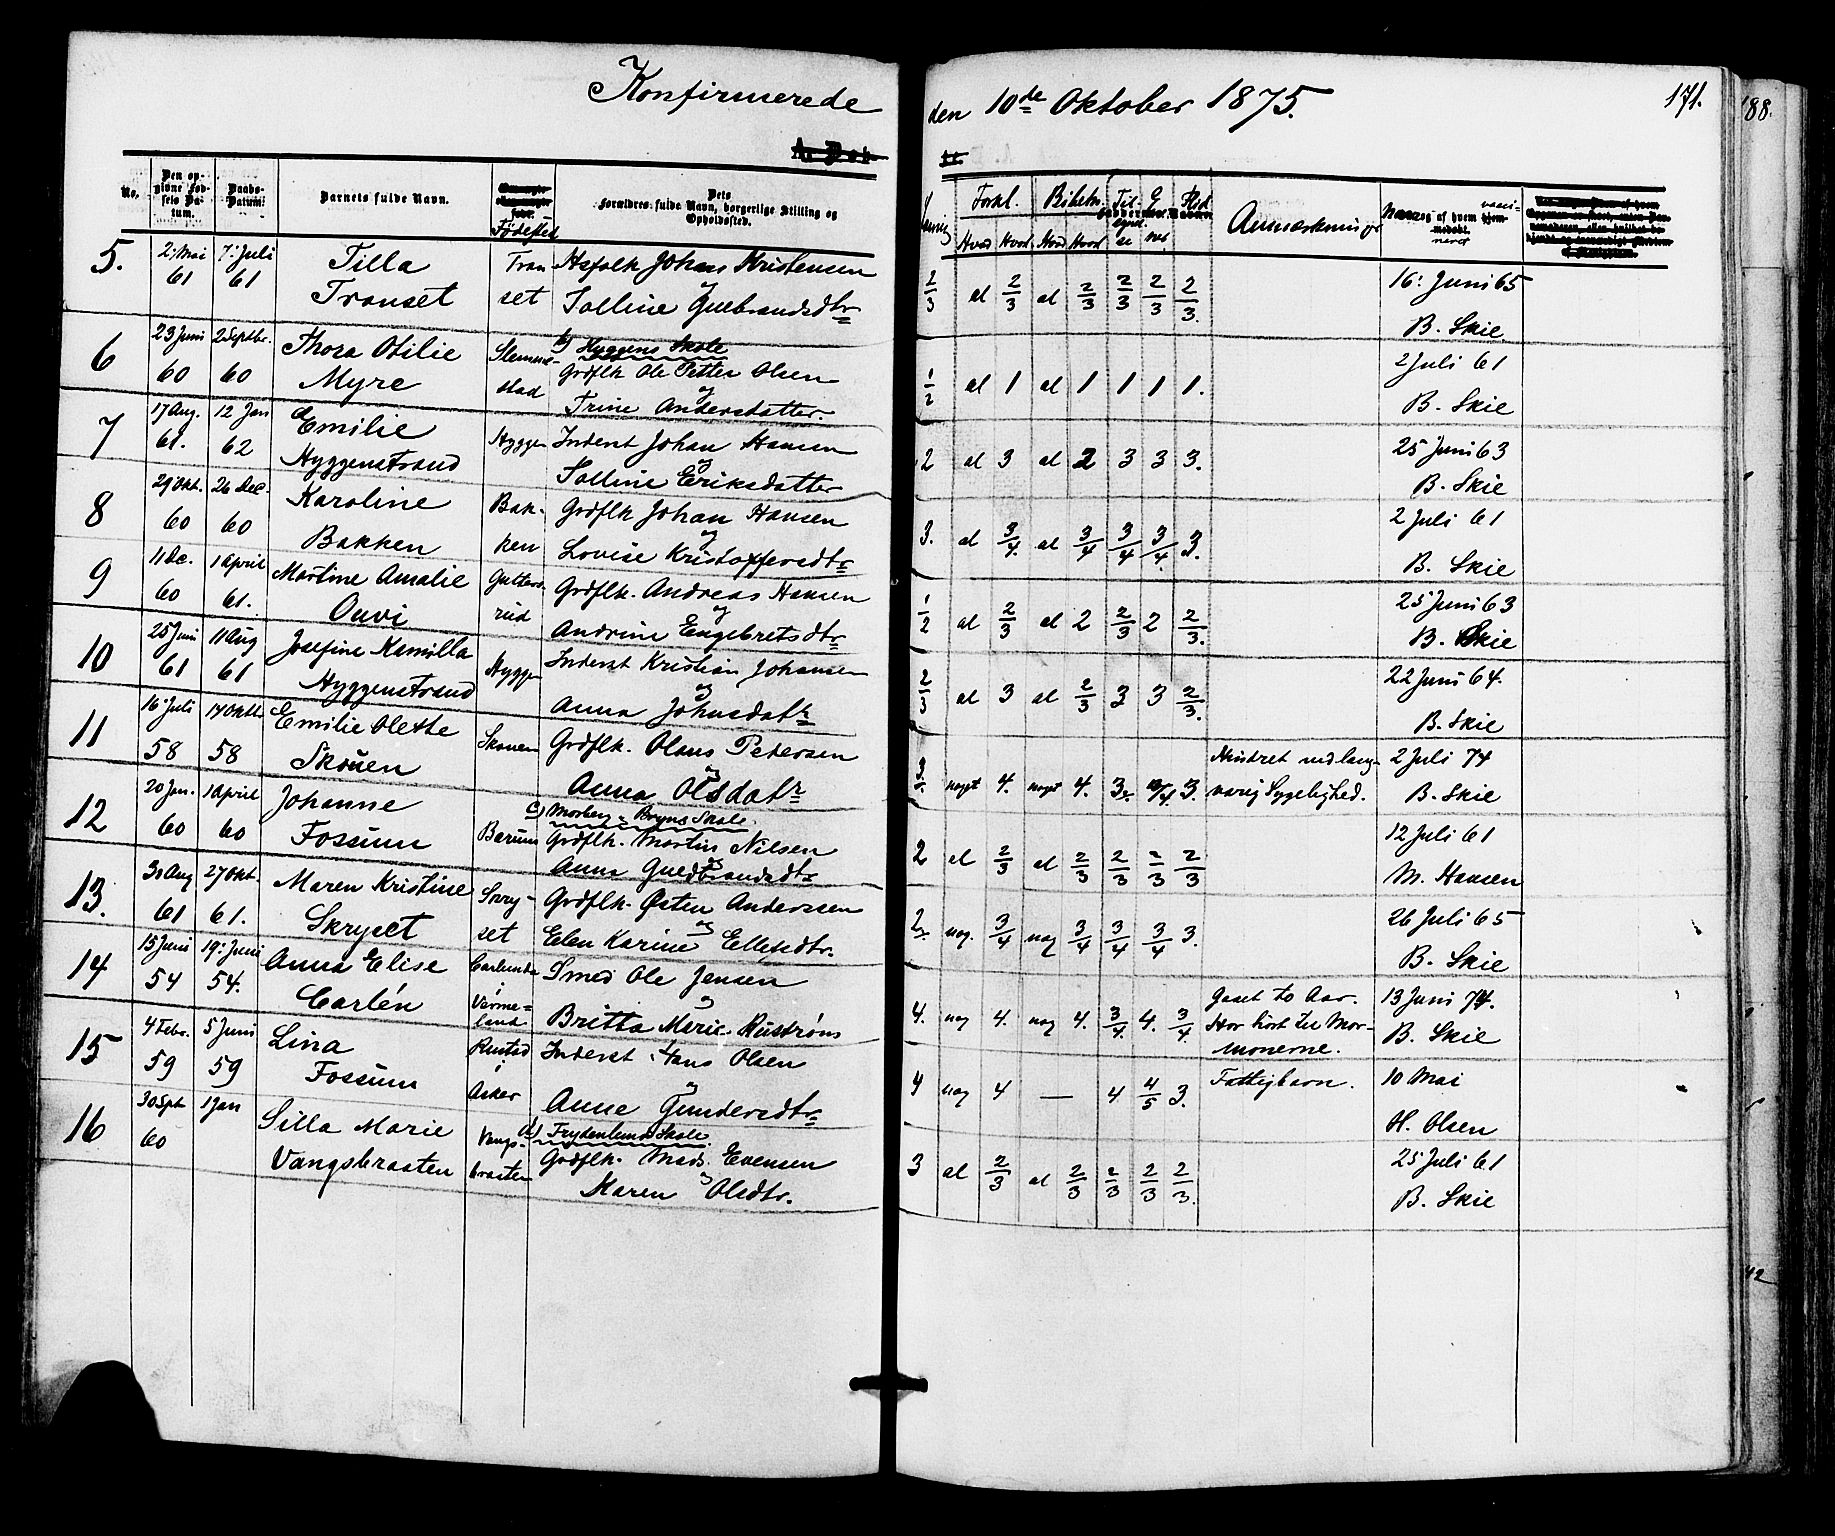 Konfirmerede den 10de Oktober 1875.
171.
188.
No.
Den op-
givne Fød-
sels Da-
tum.
Daabs-
Datum.
Barnets fulde Navn.
Fødested
Dets
Forældres fulde Navn, borgerlige Stilling og
Opholdssted.
Forkl.
Bibelh.
Til
Flid
Hvad Hvorl. Hvad Hvorl.
Anmærkninger
Naar og af hvem
vacci-
neret
5. 2. Mai 7. Juli Tilla Tran Hsfolk Johans Kristensen
61 61 Transet set og
Solline Gulbrandsdtr
2/3 al 2/3 al 2/3 2/3 2/3 2/3. 16. Juni 65
B. Skie.
b) Hyggens Skole
6 23 Juni 2 Septbr. Thora Otilie Slemme- Grdflk Ole Petter Olsen
60 60 Myre stad og
Trine Andersdatter.
1/2 al 1 al 1 1 1 1. 2 Juli 61
B. Skie
7 17 Aug. 12 Jan Emilie Hyggen Inderst Johan Hansen
61. 62 Hyggenstrand og
Solline Eriksdatter
2 al 3 al 2 3 3 3. 25 Juni 63
B. Skie
8 29 Okt. 26 Dec. Karoline Bak- Grdflk Johan Hansen
60 60 Bakken ken og
Lovise Kristoffersdtr
3. al 3/4. al 3/4 3/4 3/4. 3. 2 Juli 61
B. Skie
9 11 Dec. 1 April Martine Amalie Grdflk. Andreas Hansen
60 61. Onvi rud og
Andrine Engebretsdtr
1/2 al 2/3 al 2 2/3 2 2/3. 25 Juni 63
B. Skie
10 25 Juni 11 Aug Josefine Kamilla Hyggen Inderst Kristian Johansen
61 61 Hyggenstrand og
Anna Johnsdatr
2/3 al 3 al 2/3 3 3 2/3. 22 Juni 64.
B. Skie
11 16. Juli 17 Oktb. Emilie Olette Skouen Grdflk. Olaus Petersen
58 58 Skouen og
Anna Olsdatr
noget 4. noget 4. 3. Hindret ved lang-
varig Sygelighed. 2 Juli 74
B. Skie
c) Morberg - Bryns Skole.
12 20 Jan. 1 April Johanne Bærum Grdflk. Martin Nilsen
60 60 Fossum og
Anna Guldbrandsdtr
2 al 2/3 al 2/3 2/3 2/3 2/3 12 Juli 61
M. Hansen
13. 30 Aug 27 Okt. Maren Kristine Grdflk. Østen Anderssen
61 61. Skryset set og
Elen Karine Ellefsdtr.
nog. 3/4 nog 3/4 3/4 3/4 3. 26 Juli 65
B. Skie
14 15 Juni 19. Juni Anna Elise Carlanda Smed Ole Jensen
54 54. Carlén i og
Værme-
land Britta Marie Rustrøms
4. nog 4. nog 4. 3/4. 4. 3/4. Gaaet to Aar.
Har hørt til Mor-
monerne. 13 Juni 74.
B. Skie
15 4 Febr. 5 Juni Lina Rustad Inderst Hans Olsen
59 59 Fossum i og
Asker Anne Gundersdtr
4 nog 4 — 4 4/5 3. Fattigbarn. 10 Mai
H. Olsen
d) Frydenlunds Skole.
16 30 Spt 1 Jan Silla Marie Vangs- Grdflk. Mads. Evensen
60 Vangsbraaten braaten og
Maren Olsdtr.
3 al 2/3 al 2/3 2/3 2/3 2/3. 25 Juli 61
B. Skie